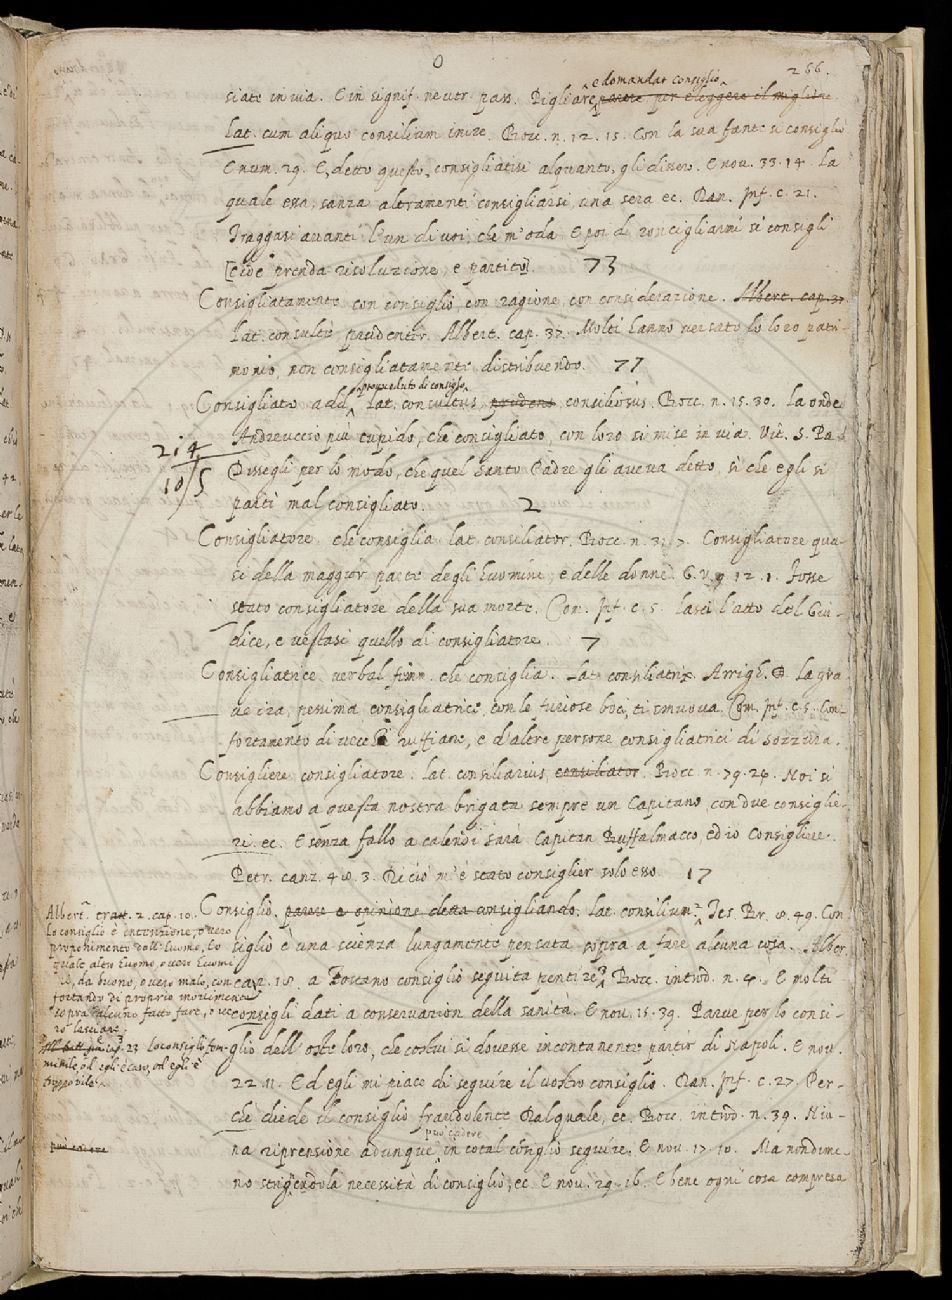 O
266.
e domandar consiglio
siate in via. E in signif. neutr. pass. Pigliare parere per eleggere il migliore
lat. cum aliquo consilium inire. Bocc. n. 12. 15. Con la sua fante si consigliò
E num. 29. E, detto questo, consigliatisi alquanto, gli dissero. E nov. 33. 14. La
quale essa, sanza altramenti consigliarsi, una sera ec. Dan. Inf. c. 21.
Traggasi avanti l'un di voi, che m'oda E poi di roncigliarmi si consigli
[cioè prenda risoluzione, e partito] 73
Consigliatamente con consiglio, con ragione, con considerazione. Albert. cap. 37
lat. consultè prudenter. Albert. cap. 37. Molti hanno versato lo loro patri-
monio, non consigliatamente distribuendo. 77
provveduto di consiglio
Consigliato add. lat. consultus, prudens, consiliosus. Bocc. n. 15. 30. La onde
Andreuccio più cupido, che consigliato, con loro si mise in via. Vit. S. Pad.
214
105
Dissegli per lo modo, che quel Santo Padre gli aveva detto, sì che egli si
partì mal consigliato. 2
Consigliatore che consiglia lat. consiliator. Bocc. n. 3. 7. Consigliatore qua-
si della maggior parte degli huomini, e delle donne. G. V. 9. 12. 1. Fosse
stato consigliatore della sua morte. Com. Inf. c. 5. lasci l'atto del Giu-
dice, e vestasi quello di consigliatore. 7
Consigliatrice verbal femm. che consiglia. Lat. consiliatrix. Arrigh. La gra-
vezza, pessima consigliatrice, con le furiose boci, ti commova. Com. Inf. c. 5. Con-
fortamento di vecchie ruffiane, e d'altre persone consigliatrici di sozzura.
Consigliere consigliatore. lat. consiliarius, consiliator. Bocc. n. 79. 24. Noi si
abbiamo a questa nostra brigata sempre un Capitano con due consiglie-
ri. ec. E senza fallo a calendi sarà Capitan Buffalmacco, ed io Consigliere.
Petr. canz. 48. 3. Di ciò m'è stato consiglier solo esso. 17
Consiglio. parere e opinione detta consigliando. lat. consilium Tes. Br. 8. 49. Con
siglio è una scienza lungamente pensata sopra a fare alcuna cosa. Alber
cap. 18. a Toscano consiglio seguita pentire Bocc. introd. n. 4. E molti
consigli dati a conservazion della sanità. E nov. 15. 39. Parve per lo consi-
glio dell'oste loro, che costui si dovesse incontanente partir di Napoli. E nov.
22. 11. Ed egli mi piace di seguire il vostro consiglio. Dan. Inf. c. 27. Per-
chè diede il consiglio fraudolente Dal quale, ec. Bocc. introd. n. 39. Niu-
può cadere
na riprensione adunque in cotal consiglio seguire. E nov. 17. 10. Ma nondime-
no strignendola necessità di consiglio, ec. E nov. 29. 16. E bene ogni cosa compresa
Albert. tratt. 2. cap. 10.
Lo consiglio è intenzione, o vero
proponimento dell'huomo, lo
quale altro huomo, o vero huomi
ni, da buono, o vero malo, con
fortando di proprio movimento
sopra alcuno fatto fare, o ve
ro lasciare.
cap. 23 Lo consiglio fem-
minile od egli è caro, od egli è
troppo vile.
può cadere